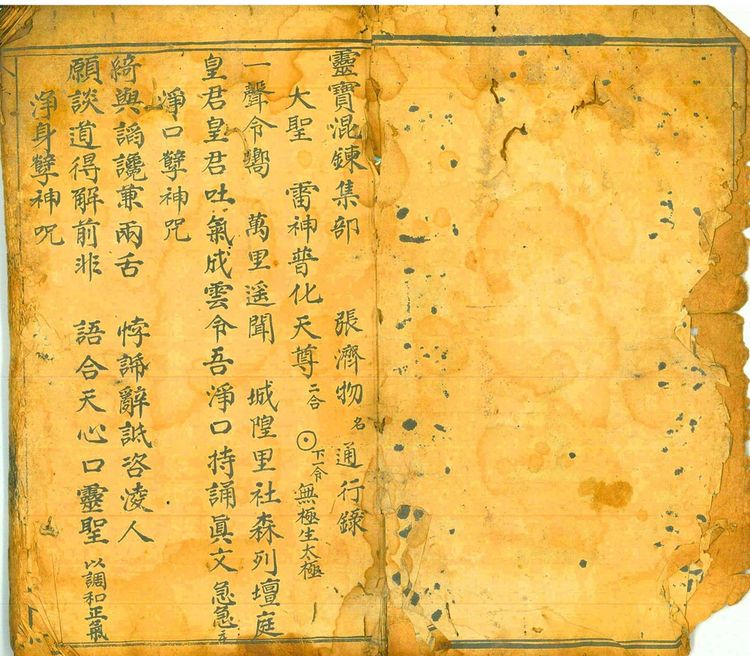 靈寶混鍊集部 張濟物名 通行錄
大聖 雷神普化天尊二合 ⊙下一令 無極生太極
一聲令嚮 萬里遥聞 城隍里社森列壇庭
皇君皇君吐氣成雲令吾淨口持誦眞文 急急
淨口孽神呪
綺與謟讒兼兩舌 悖辭詆咨淩人
願談道得解前非 語合天心口靈聖 以調和正氣
淨身孽神呪